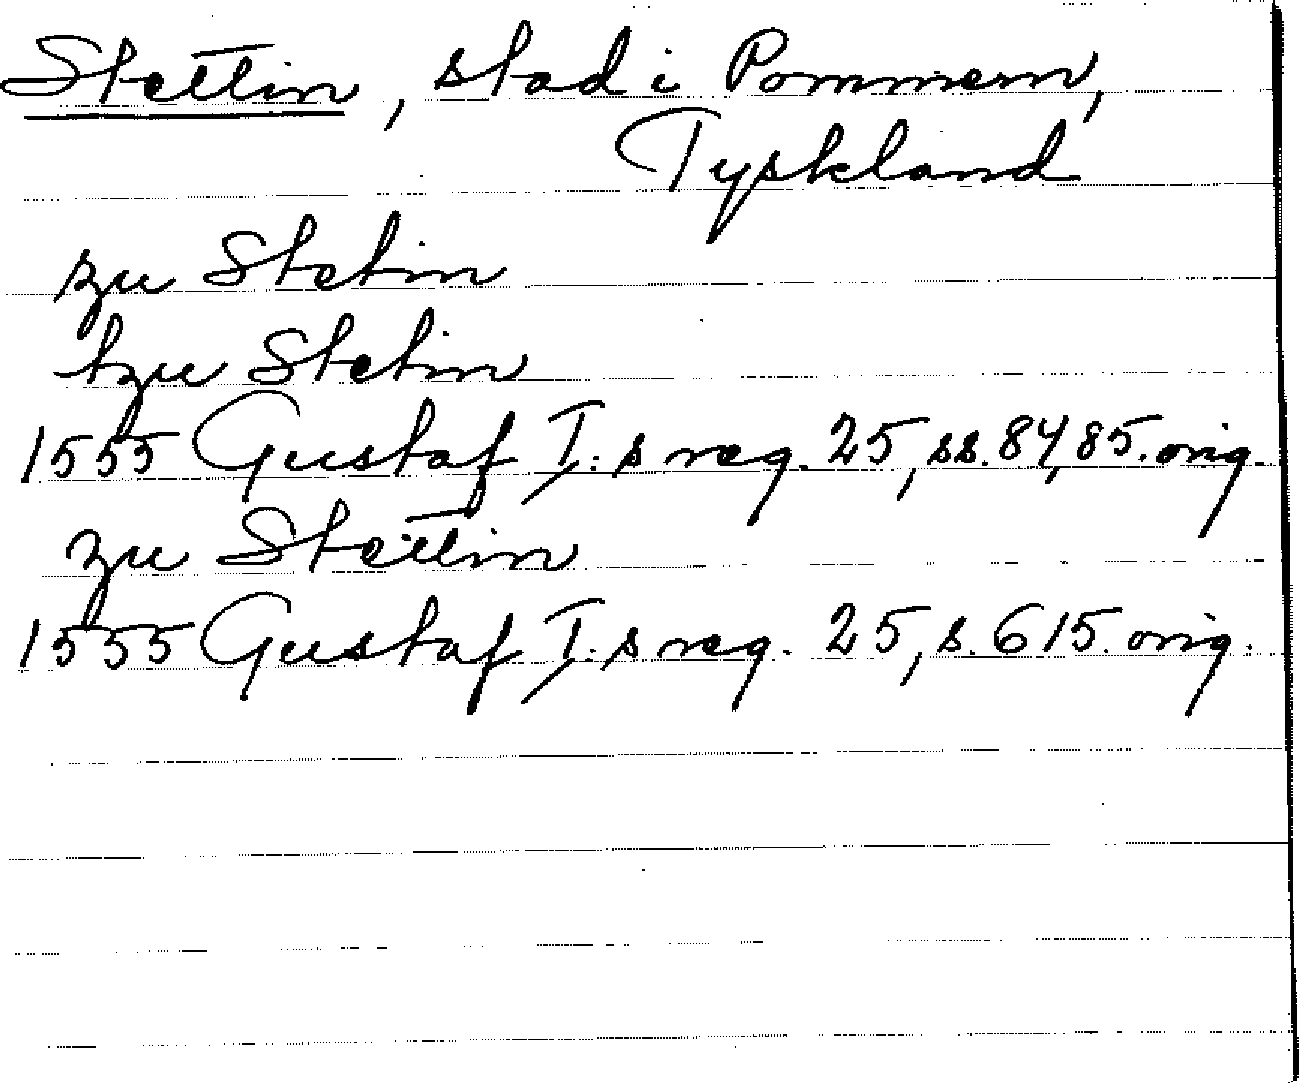 Stettin, stad i Pommern,
Tyskland
zu Stetin
tzu Stetin
1555 Gustaf I:s reg. 25, ss. 84, 85. orig.
zu Stettin
1555 Gustaf I:s reg. 25, s. 615. orig.